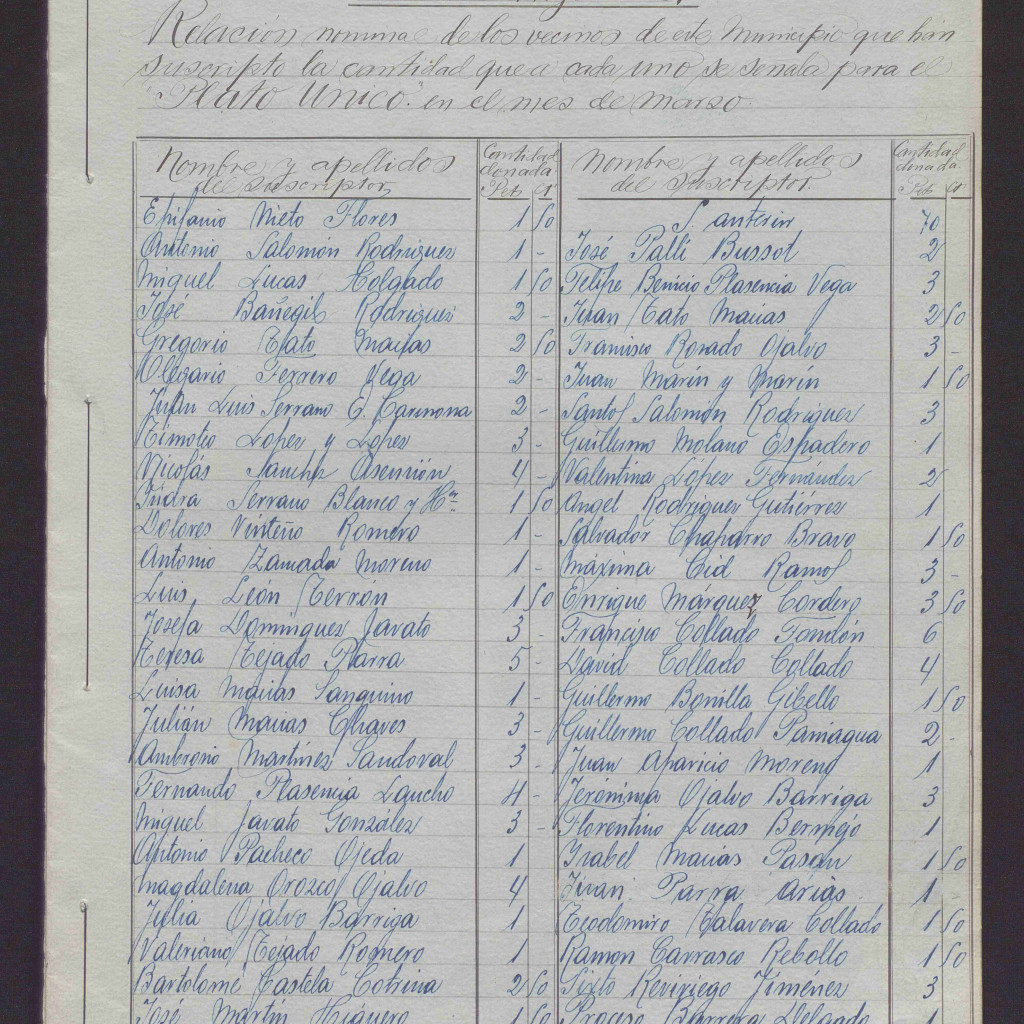 Relación nominal de los vecinos de este Municipio que han
suscripto la cantidad que a cada uno se señala para el
"Plato Unico" en el mes de marzo
Nombre y apellidos
del suscriptor
Cantidad
donada
Pts Ct
Epifanio Nieto Flores 1 50
Antonio Salomón Rodriguez 1 -
Miguel Lucas Holgado 1 50
José Bañegil Rodriguez 2 -
Gregorio Tato Macias 2 50
Olegario Ferrero Vega 2 -
Julan Luis Serrano G. Carmona 2 -
Timoteo Lopez y Lopez 3 -
Nicolás Sanchez Asensión 4 -
Isidra Serrano Blanco y Hna 1 50
Dolores Vinteño Romero 1 -
Antonio Zamada Moreno 1 -
Luis León Terrón 1 50
Josefa Dominguez Javato 3 -
Teresa Tejado Parra 5 -
Luisa Macias Sanguino 1 -
Julián Macias Chaves 3 -
Ambrosio Martínez Sandoval 3 -
Fernando Plasencia Loncho 4 -
Miguel Javato González 3 -
Antonio Pacheco Ojeda 1
Magdalena Orozco Ojalvo 4
Julia Ojalvo Barriga 1
Valeriano Tejado Romero 1
Bartolomé Castela Cotrina 2 50
José Martín Higuero 1 50
Nombre y apellidos
del suscriptor.
Cantidad
donada
Pts Ct
S. anterior 70
José Palli Bussot 2
Felipe Benicio Plasencia Vega 3
Juan Tato Macias 2 50
Francisco Rosado Ojalvo 3 -
Juan Marin y Marín 1 50
Santos Salomón Rodriguez 3
Guillermo Molano Espadero 1
Valentina López Fernández 2
Angel Rodriguez Gutiérrez 1
Salvador Chaparro Bravo 1 50
Máxima Cid Ramos 3 -
Enrique Márquez Cordero 3 50
Francisco Collado Tondón 6
David Collado Collado 4
Guillermo Bonilla Gibello 1 50
Guillermo Collado Paniagua 2 -
Juan Aparicio Moreno 1
Jerónima Ojalvo Barriga 3
Florentino Lucas Bermejo 1
Isabel Macias Pasan 1 50
Juan Parra Arias 1 -
Teodomiro Talavera Collado 1 50
Ramon Carrasco Rebollo 1 50
Sixto Reviriego Jiménez 3
Proceso Barrera Delgado 1